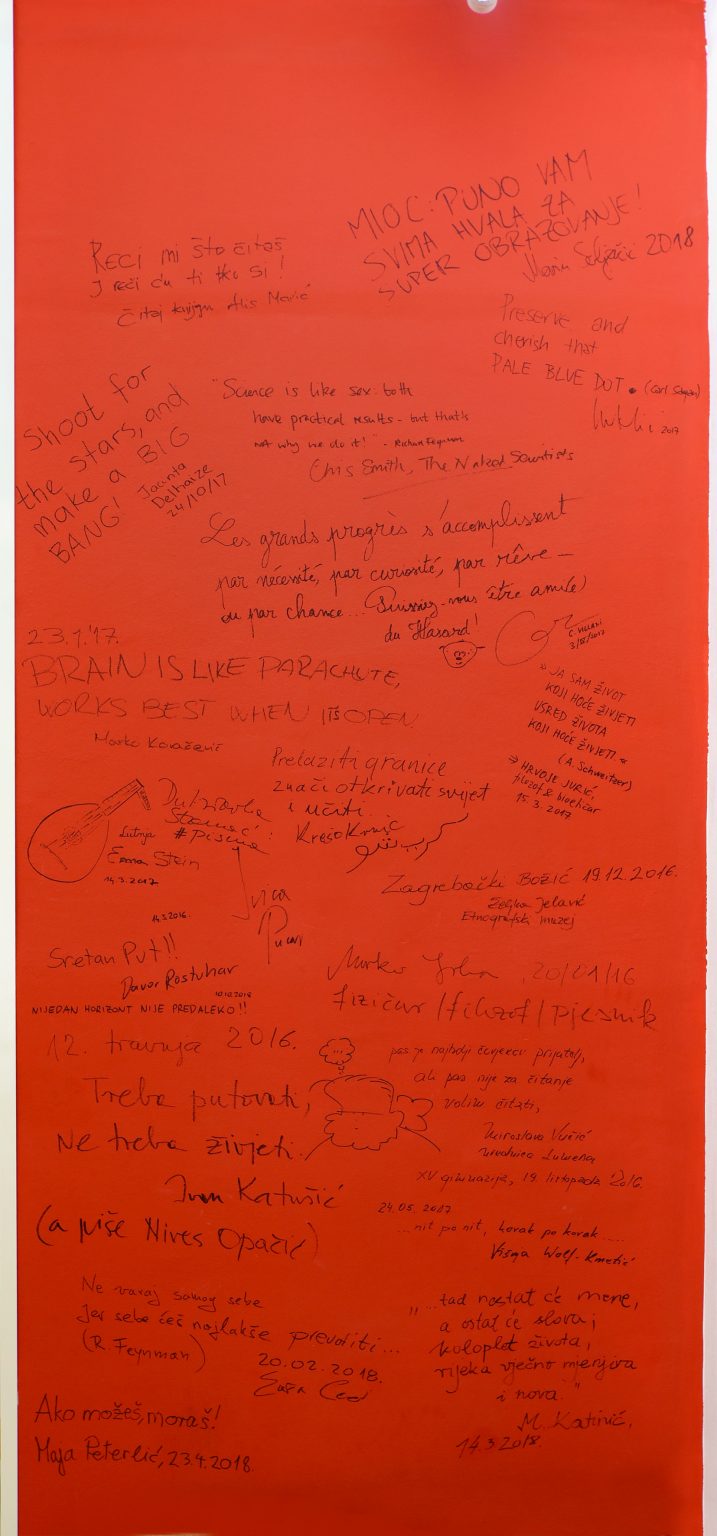 MIOC: PUNO VAM
SVIMA HVALA ZA
SUPER OBRAZOVANJE!
Marin Soljačić 2018
Reci mi što čitaš
I reći ću ti tko si!
Čitaj knjigu Alis Marić
Preserve and
cherish that
PALE BLUE DOT. (Carl Sagan)
2017
Shoot for
the stars, and
make a BIG
BANG!
Jacinta
Delhaize
24/10/17
"Science is like sex: both
have practical results - but that's
not why we do it!" - Richard Feynman
Chris Smith, The Naked Scientists
Les grands progrès s'accomplissent
par nécessité, par curiosité, par rêve —
ou par chance... Puissiez-vous être ami(e)
du Hasard!
3/III/2017
23.1.'17.
BRAIN IS LIKE PARACHUTE,
WORKS BEST WHEN ITS OPEN.
Marko Košiček
"JA SAM ŽIVOT
KOJI HOĆE ŽIVJETI
USRED ŽIVOTA
KOJI HOĆE ŽIVJETI."
(A. Schweitzer)
HRVOJE JURIĆ,
filozof & bioetičar
15.3.2017
Prelaziti granice
znači otkrivati svijet
i učiti.
Dubravka
Stamać
#pisma
Lutnja
Stein
14.3.2017
Ivica
14.3.2016.
Zagrebački Božić 19.12.2016.
Željka Jelavić
Etnografski muzej
Sretan Put!!
Davor Rostuhar
10.10.2016
NIJEDAN HORIZONT NIJE PREDALEKO!!
Marko 20/01/16
fizičar/filozof/pjesnik
12. travnja 2016.
Treba putovati,
Ne treba živjeti.
Ivan Katušić
(a piše Nives Opačić)
pas je najbolji čovjekov prijatelj,
ali pas nije za čitanje
volim čitati,
Miroslava Vučić
urednica Lumena
XV gimnazija, 19. listopada 2016.
24.05.2017
...nit po nit, korak po korak.....
Višnja Wolf-Kmetić
Ne varaj samog sebe
Jer sebe ćeš najlakše prevariti...
(R. Feynman)
20.02.2018.
"...tad nestat će mene,
a ostat će slova;
koloplet života,
rijeka vječno mjenjiva
i nova."
M. Katinić,
14.3.2018.
Ako možeš, moraš!
Maja Peterlić, 23.4.2018.